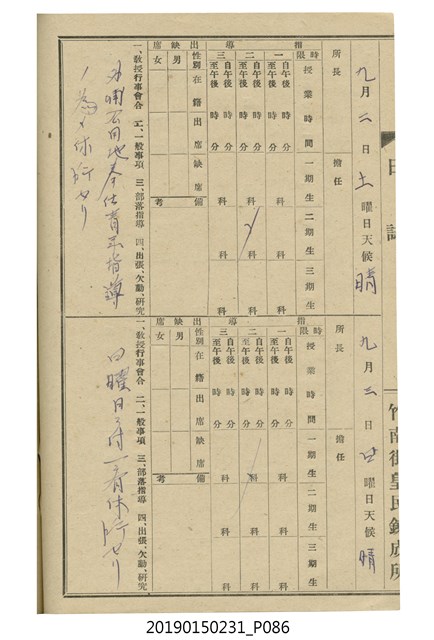 日誌
竹南街皇民鍊成所
九月二日土曜日天候晴
所長 擔任
時限 授業時間 一期生 二期生 三期生
指導
一 自午後 時 分 至午後 時 分 科 科 科
二 自午後 時 分 至午後 時 分 科 科 科
三 自午後 時 分 至午後 時 分 科 科 科
出缺席
性別 在籍 出席 缺席 備考
男
女
一、敎授行事會合 二、一般事項 三、部落指導 四、出張、欠勤、硏究
奉仕
指導
ノ為メ休
セリ
九月三日日曜日天候晴
所長 擔任
時限 授業時間 一期生 二期生 三期生
指導
一 自午後 時 分 至午後 時 分 科 科 科
二 自午後 時 分 至午後 時 分 科 科 科
三 自午後 時 分 至午後 時 分 科 科 科
出缺席
性別 在籍 出席 缺席 備考
男
女
一、敎授行事會合 二、一般事項 三、部落指導 四、出張、欠勤、硏究
日曜日ニ付
休
セリ
20190150231_P086